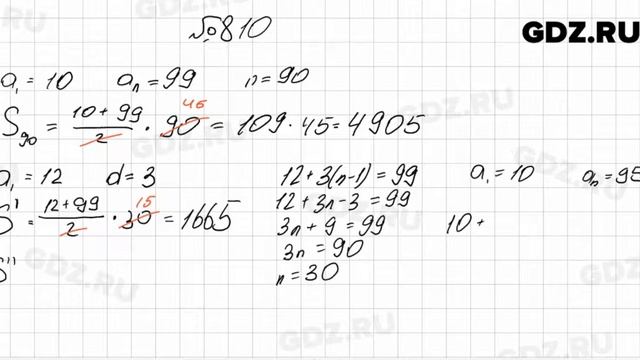 №810
GDZ.RU
a₁ = 10 aₙ = 99 n = 90
S₉₀ = (10 + 99)/2 · 90 45 = 109 · 45 = 4905
a₁ = 12 d = 3
S' = (12 + 99)/2 · 30 15 = 1665
S''
12 + 3(n-1) = 99
12 + 3n - 3 = 99
3n + 9 = 99
3n = 90
n = 30
a₁ = 10 aₙ = 95
10 +